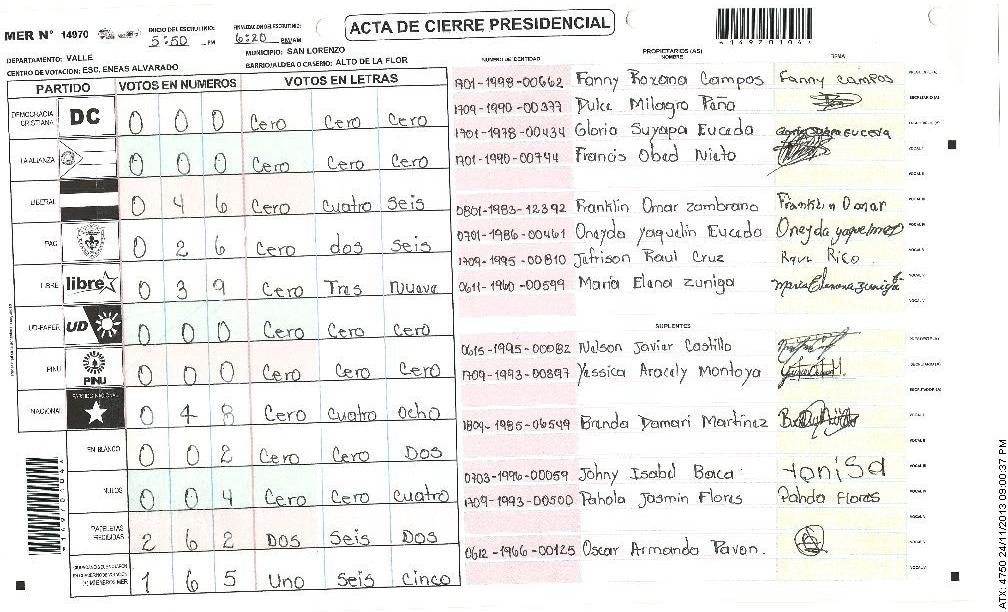 MER N° 14970
INICIO DEL ESCRUTINIO: 5:50 PM
FINALIZACION DEL ESCRUTINIO: 6:20 PM/AM
ACTA DE CIERRE PRESIDENCIAL
*149701041*
DEPARTAMENTO: VALLE
MUNICIPIO: SAN LORENZO
CENTRO DE VOTACION: ESC. ENEAS ALVARADO
BARRIO/ALDEA O CASERIO: ALTO DE LA FLOR
PARTIDO VOTOS EN NUMEROS VOTOS EN LETRAS
DEMOCRACIA CRISTIANA DC 0 0 0 Cero Cero Cero
LA ALIANZA 0 0 0 Cero Cero Cero
LIBERAL 0 4 6 Cero cuatro seis
PAC 0 2 6 Cero dos seis
LIBRE libre 0 3 9 Cero Tres nueve
UD-FAPER UD 0 0 0 Cero Cero Cero
PINU PINU 0 0 0 Cero Cero Cero
NACIONAL PARTIDO NACIONAL 0 4 8 Cero cuatro ocho
EN BLANCO 0 0 2 Cero Cero Dos
NULOS 0 0 4 Cero Cero cuatro
PAPELETAS RECIBIDAS 2 6 2 Dos Seis Dos
1 6 5 Uno Seis Cinco
PROPIETARIOS (AS)
NUMERO DE IDENTIDAD NOMBRE FIRMA
1701-1998-00662 Fanny Roxana Campos Fanny campos
1709-1990-00377 Dulce Milagro Paña
1701-1978-00434 Gloria Suyapa Euceda
1701-1990-00744 Francis Obed Nieto
0801-1983-12392 Franklin Omar zambrano Franklin Omar
0701-1986-00461 Oneyda Yaquelin Euceda Oneyda
1709-1995-00810 Jefrison Raul Cruz
0611-1960-00599 Maria Elena zuniga
SUPLENTES
0615-1995-00082 Nelson Javier Castillo
1709-1993-00897 Yessica Aracely Montoya
1804-1985-06549 Brenda Damari Martinez
0703-1996-00059 Johny Isabel Baca
1709-1993-00500 Pahola Jasmin Flores Flores
0612-1966-00125 Oscar Armando Pavon.
ATX: 4750 24/11/2013 09:00:37 PM